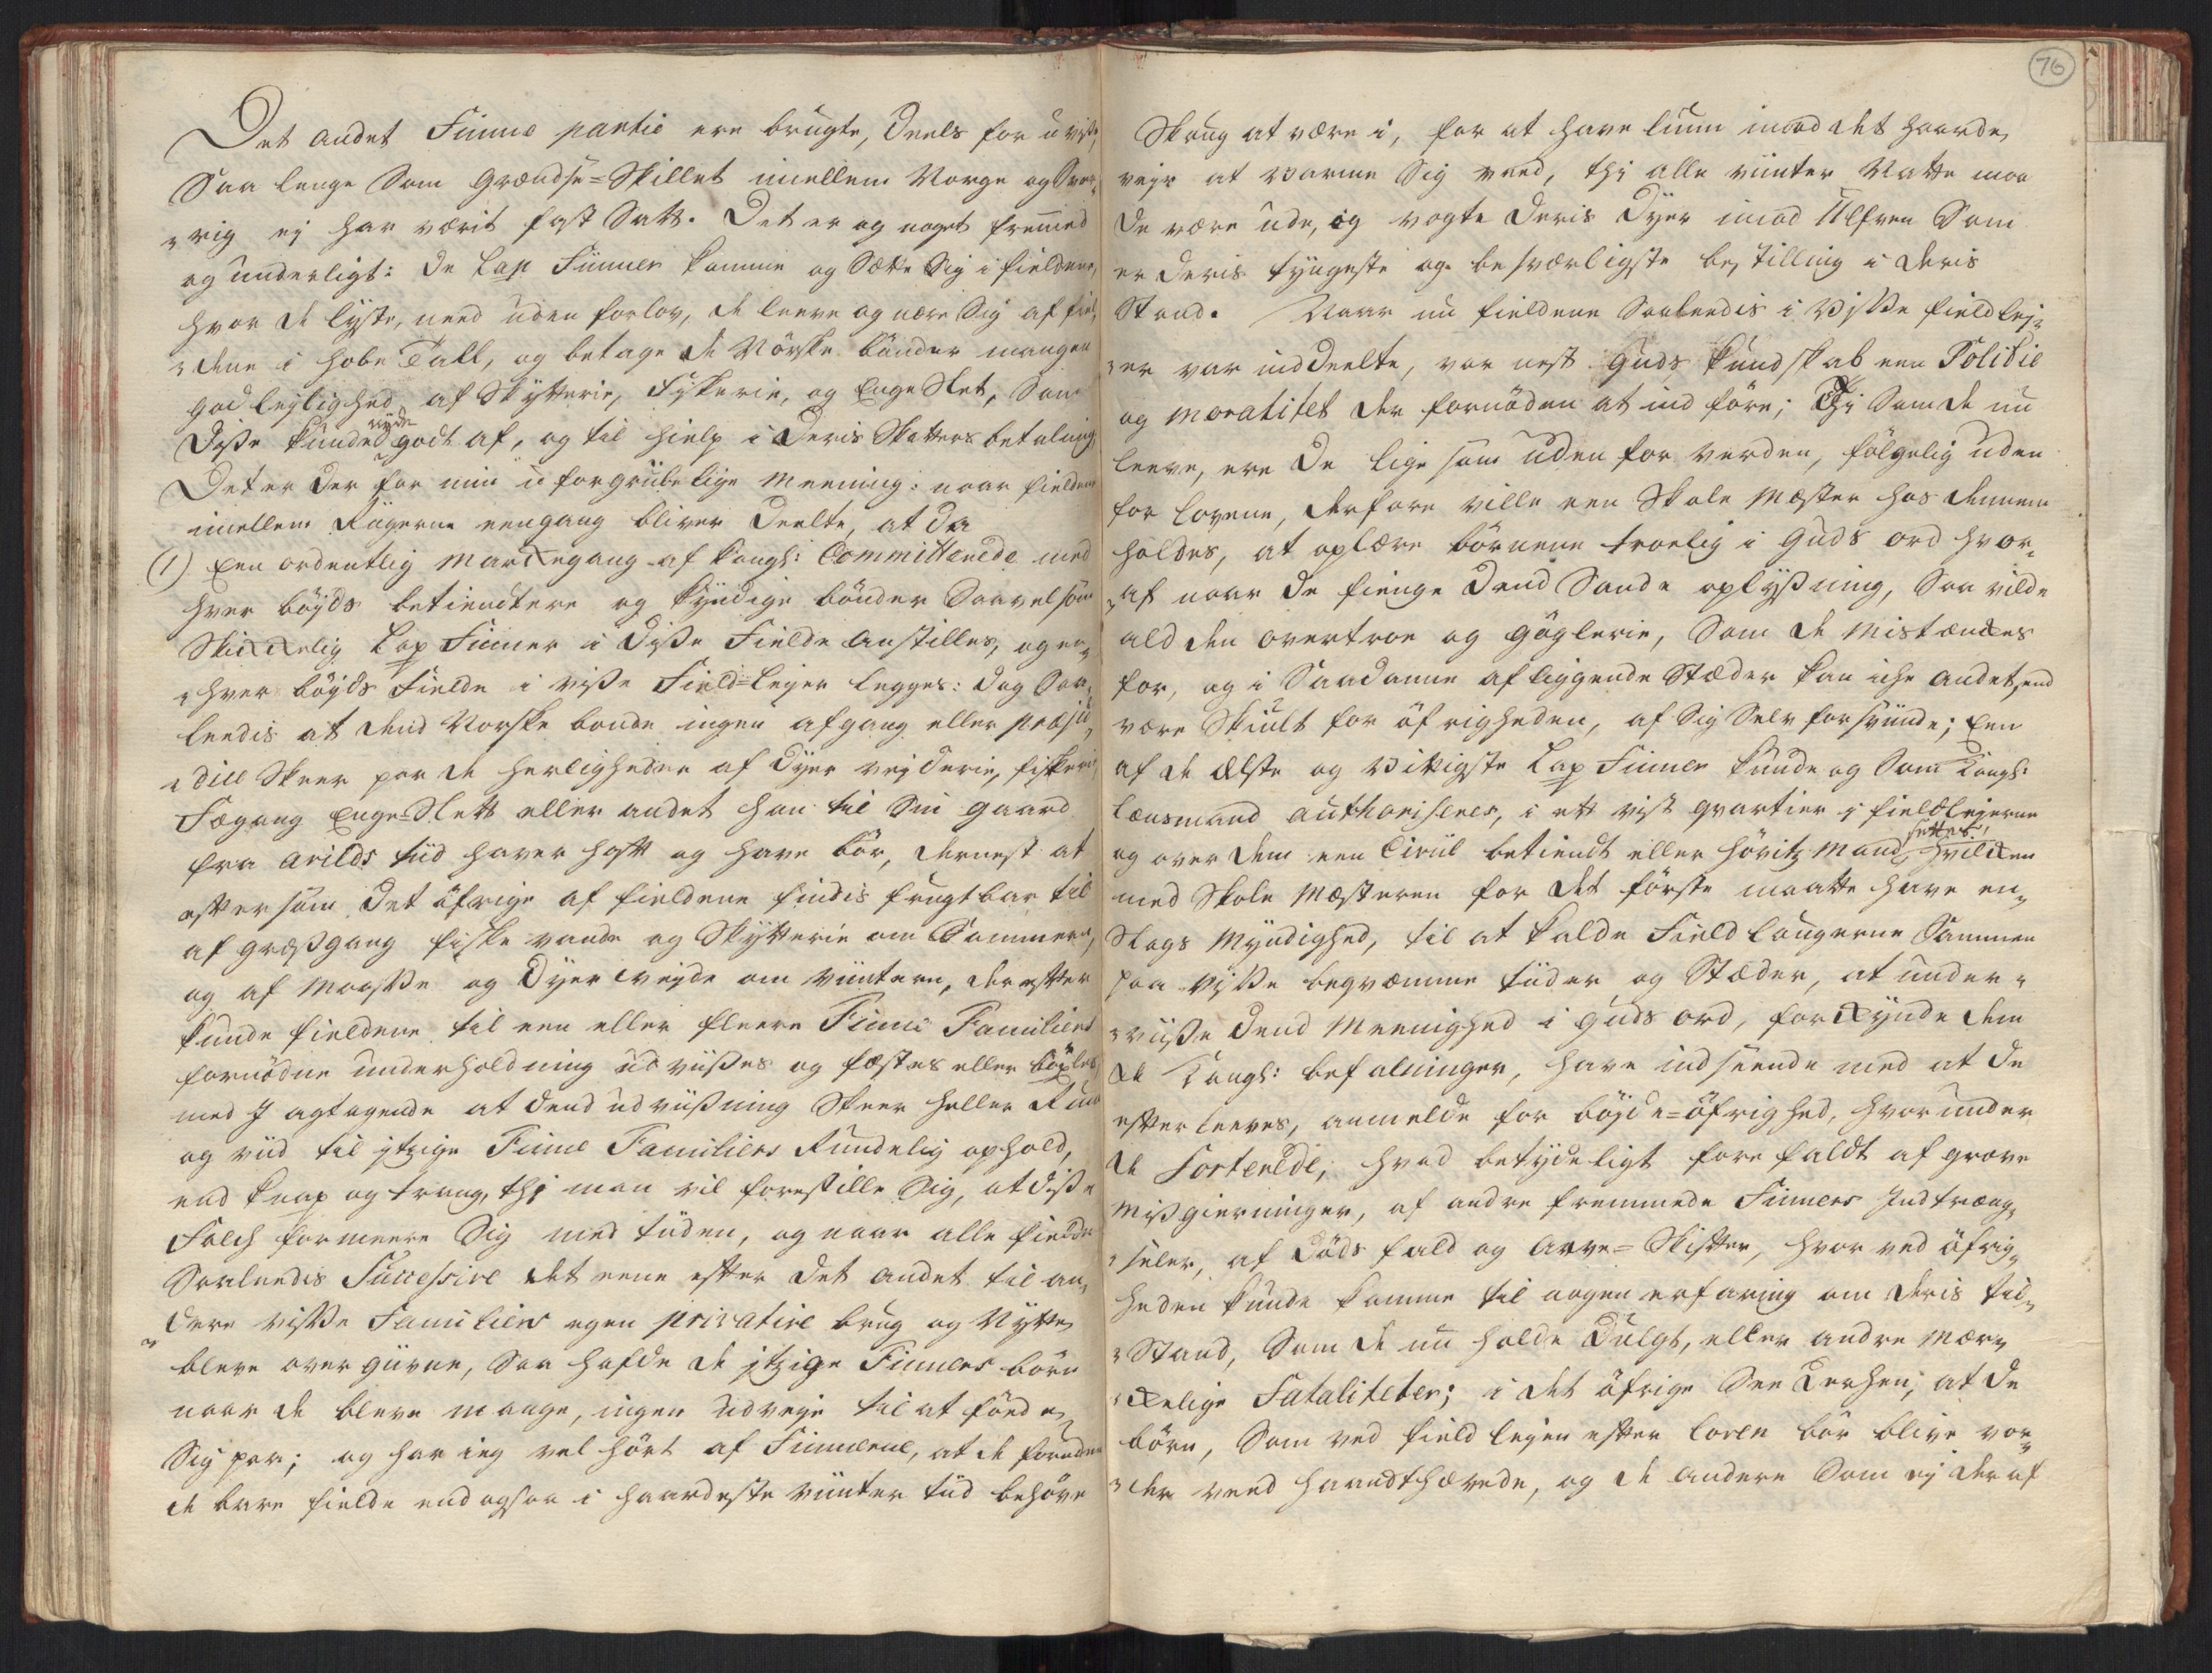 Det andet Finne partie ere brugte, deels for u visse,
Saa lenge Som Grændse=Skillet imellem Norge og Sver„
„rig ej har værit fast Satt. Det er og noget fremmed
og underligt: De Lap Finner komme og Sætte Sig i fieldene,
hvor de lyste, need uden forlov, de leeve og nære Sig af fiel„
„dene i hobe Tall, og betage de Norske bönder mangen
god leylighed af Skytterie, Fiskerie, og Enge Slet, Som
Disse kunde nyde godt af, og til hielp i deris Skatters betaling
Det er der for min u forgribelige Meening: naar fieldene
imellem Rigerne eengang bliver deelte, at da
(1) Een ordentlig Markegang af Kongl: Committerede med
hver böyds betiendtere og kyndige bönder Saavelsom
Skickelig Lap Finner i disse Fielde Anstilles, og en„
„hver böyds Fielde i visse Field=Lejer legges: dog Saa„
leedis at dend Norske bonde ingen afgang eller præju„
„dice Skeer paa de herligheder af dyer vejderie, fiskerie,
Fægang Enge=Slett eller andet han til Sin gaard
fra Arilds tiid haver hafft og have bör, dernest at
efftersom det öfrige af fieldene findis frugtbar til
af græssgang fiske vande og Skytterie om Sommeren,
og af Maasse og Dyer vejde om Vinteren, derefter
kunde fieldene til een eller fleere Finne Familiers
fornödne underholdning ud viises og fæstes eller böxles
med J agtagende at dend udviissning Skeer heller Rum
og viid til jtzige Finne Familiers Rundelig ophold,
end knap og trang, thj man vil forestille Sig, at disse
Folch formeere Sig med tiiden, og naar alle fielde
Saaleedis Successive det eene effter det andet til an„
dere visse Familiers egen privative brug og Nytte
bleve over giivne, Saa hafde de jtzige Finners börn
naar de bleve mange, ingen udveje til at föede
Sig paa; og har ieg vel hört af Finnerne, at de foruden
de bare fielde endogsaa i haardeste vinter tiid behöve

76
Skoug at være i, for at have lium imod det haarde
vejr at varme Sig veed, thj alle vinter Natte maa
De være ude, og vogte deris Dyer imod Ulfven Som
er deris tyngeste og besværligste bestilling i deris
Stand. Naar nu fieldene Saaleedis i Visse field lej„
„er var inddeelte, var nest Guds kundskab een Politie
og Moralitet der fornöden at ind före; Thi Som de nu
leeve, ere De lige som uden for verden, fölgelig uden
for Lovene, derfore ville een Skole Mæster hos dennem
holdes, at oplære börnene troelig i Guds ord hvor„
„af naar de fienge dend Sande oplyssning, Saa vilde
ald den overtroe og göglerie, Som de Mistænckes
for, og i Saadanne af liggende Stæder kan icke andet, end
være Skiult for öfrigheden, af Sig Selv forsvinde; Een
af de Ælste og Vittigste Lap Finner kunde og Som Kongl:
Lænsmand Authoriseres, i ett vist qvartier i fieldlejerne
og over dem een Civiil betiendt eller hövitz Mand settes, hvilcken
med Skole Mæsteren for det förste maatte have en„
Slags Myndighed, til at kalde Field laugerne Sammen
paa Visse beqvæmme tiider og Stæder, at under„
„viisse dend Meenighed i Guds ord, forkynde dem
de Kongl: befalninger, have indseende med at de
effterleeves, anmelde for böyde=öfrighed, hvorunder
de Sorterede, hvad betydeligt fore faldt af grove
Missgierninger, af andre fremmede Finners Indtræng„
„seler, af Döds fald og Arve=Skiffter, hvor ved öfrig„
heden kunde komme til nogen erfaring om deris til„
„Stand, Som de nu holde Dulgt, eller andre Mær„
„ckelige Fataliteter; i det öfrige See Derhen, at de
börn, Som ved field lejen effter Loven bör blive vor„
„der veed haandthævede, og de andere Som ej deraf